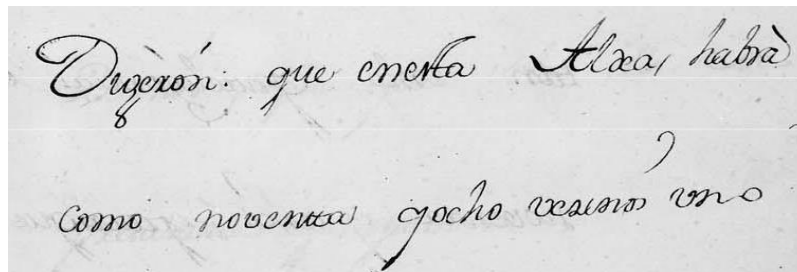 Dixerón: que enesta Alxa, habrà
como noventa yocho vesinos vno